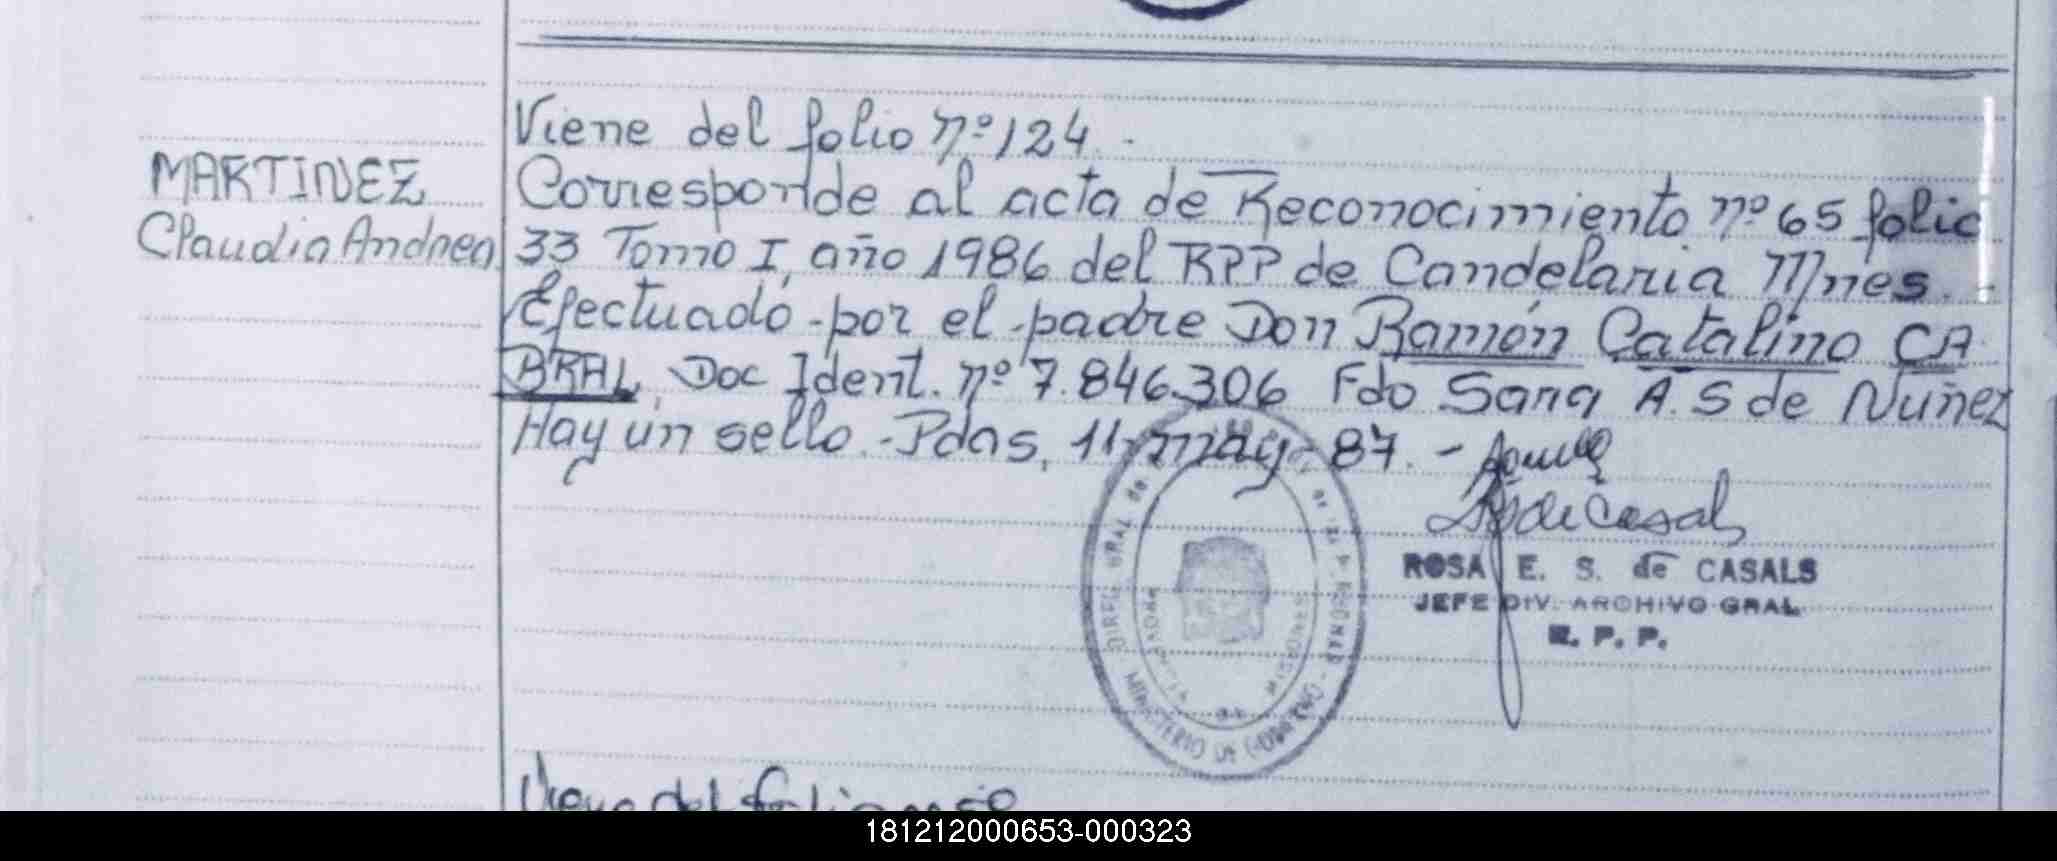 Viene del folio nº 124. -
MARTINEZ
Claudia Andrea
Corresponde al acta de Reconocimiento nº 65 folio
33 Tomo I, año 1986 del RPP de Candelaria Mnes. -
Efectuado por el padre Don Ramón Catalino CA
BRAL, Doc Ident. nº 7.846.306 Fdo Sara A. S de Nuñez
Hay un sello. - Pdas, 11-may-87. -
S de Casals
ROSA E. S. de CASALS
JEFE DIV. ARCHIVO GRAL
R. P. P.
DIREC. GRAL de
MINISTERIO DE GOBIERNO
MISIONES
Viene del folio
181212000653-000323